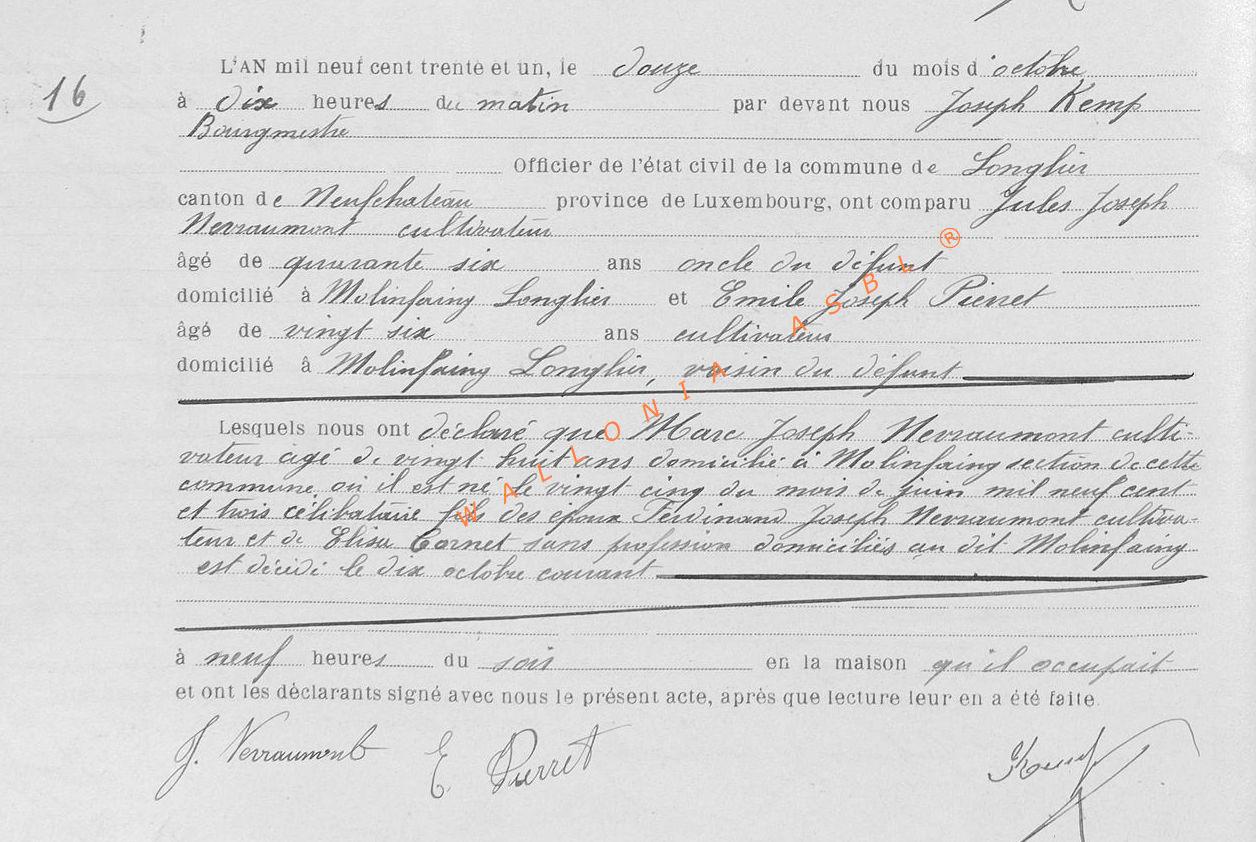 16
L'AN mil neuf cent trente et un, le douze du mois d'octobre
à dix heures du matin par devant nous Joseph Kemp
Bourgmestre
Officier de l'état civil de la commune de Longlier
canton de Neufchateau province de Luxembourg, ont comparu Jules Joseph
Nevraumont cultivateur
âgé de quarante six ans oncle du défunt
domicilié à Molinfaing Longlier et Emile Joseph Pierret
âgé de vingt six ans cultivateur
domicilié à Molinfaing Longlier, voisin du défunt
Lesquels nous ont déclaré que Marc Joseph Nevraumont culti-
vateur agé de vingt huit ans domicilié à Molinfaing section de cette
commune où il est né le vingt cinq du mois de juin mil neuf cent
et trois célibataire fils des époux Ferdinand Joseph Nevraumont cultiva-
teur et de Elisa Cornet sans profession domiciliés au dit Molinfaing
est décédé le dix octobre courant
à neuf heures du soir en la maison qu'il occupait
et ont les déclarants signé avec nous le présent acte, après que lecture leur en a été faite.
J. Nevraumont E. Pierret Kemp
WALLONIA ASBL ®